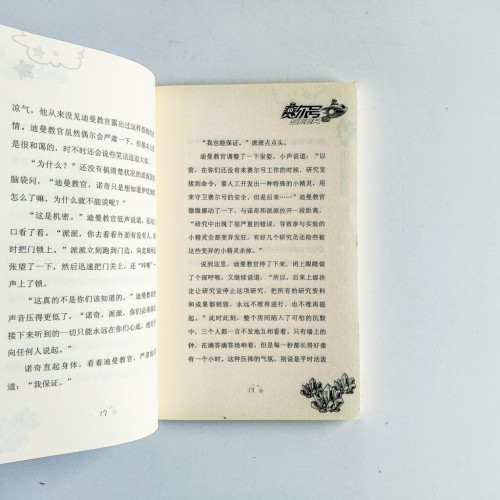 凉气，他从来没见迪曼教官露出过这样
情。迪曼教官虽然偶尔会严肃一下，但基本
是很和蔼的，时不时还会说些笑话逗逗大家。
“为什么？”还没有搞清楚状况的派派
脑袋问，“迪曼教官，诺奇只是想知道
怎么了嘛，为什么就不能说呢？”
“这是机密。”迪曼教官低声说道，还
口看看。“派派，你去看看外面有没有人，
时把门锁上。”派派立刻跑到门边，向
张望了一下，然后迅速把门关上，还“咔嚓”
声上了锁。
“这真的不是你们该知道的。”迪曼教官
声音压得更低了，“诺奇，派派，
接下来听到的一切只能永远在你们心底，
向任何人说起。”
诺奇直起身体，看着迪曼教官，严肃
道：“我保证。”
赛尔号
“我也能保证。”派派点点头。
迪曼教官调整了一下坐姿，小声说道：“以
前，在你们还没有来赛尔号工作的时候，研究室
接到命令，要人工开发出一种特殊的小精灵，用
来守卫赛尔号的安全，但是后来……”迪曼教官
微微挪动了一下，与诺奇和派派拉开一段距离，
“研究中出现了很严重的错误，导致参与实验的
小精灵全部变异发狂，有好几个研究员还险些被
这些变异的小精灵杀掉。”
说到这里，迪曼教官停了下来，闭上眼睛做
了个深呼吸，又继续说道，“所以，后来上级决
定让研究室停止这项研究，把所有的研究资料
和成果都销毁，永远不准再进行，也不准再提
起。”此时此刻，整个房间陷入了可怕的沉默
中，三个人都一言不发地互相看着，只有墙上的
钟，在滴答滴答地响着，但是每一秒都长得好像
有一个小时。这种压抑的气氛，别说是平时活泼
19